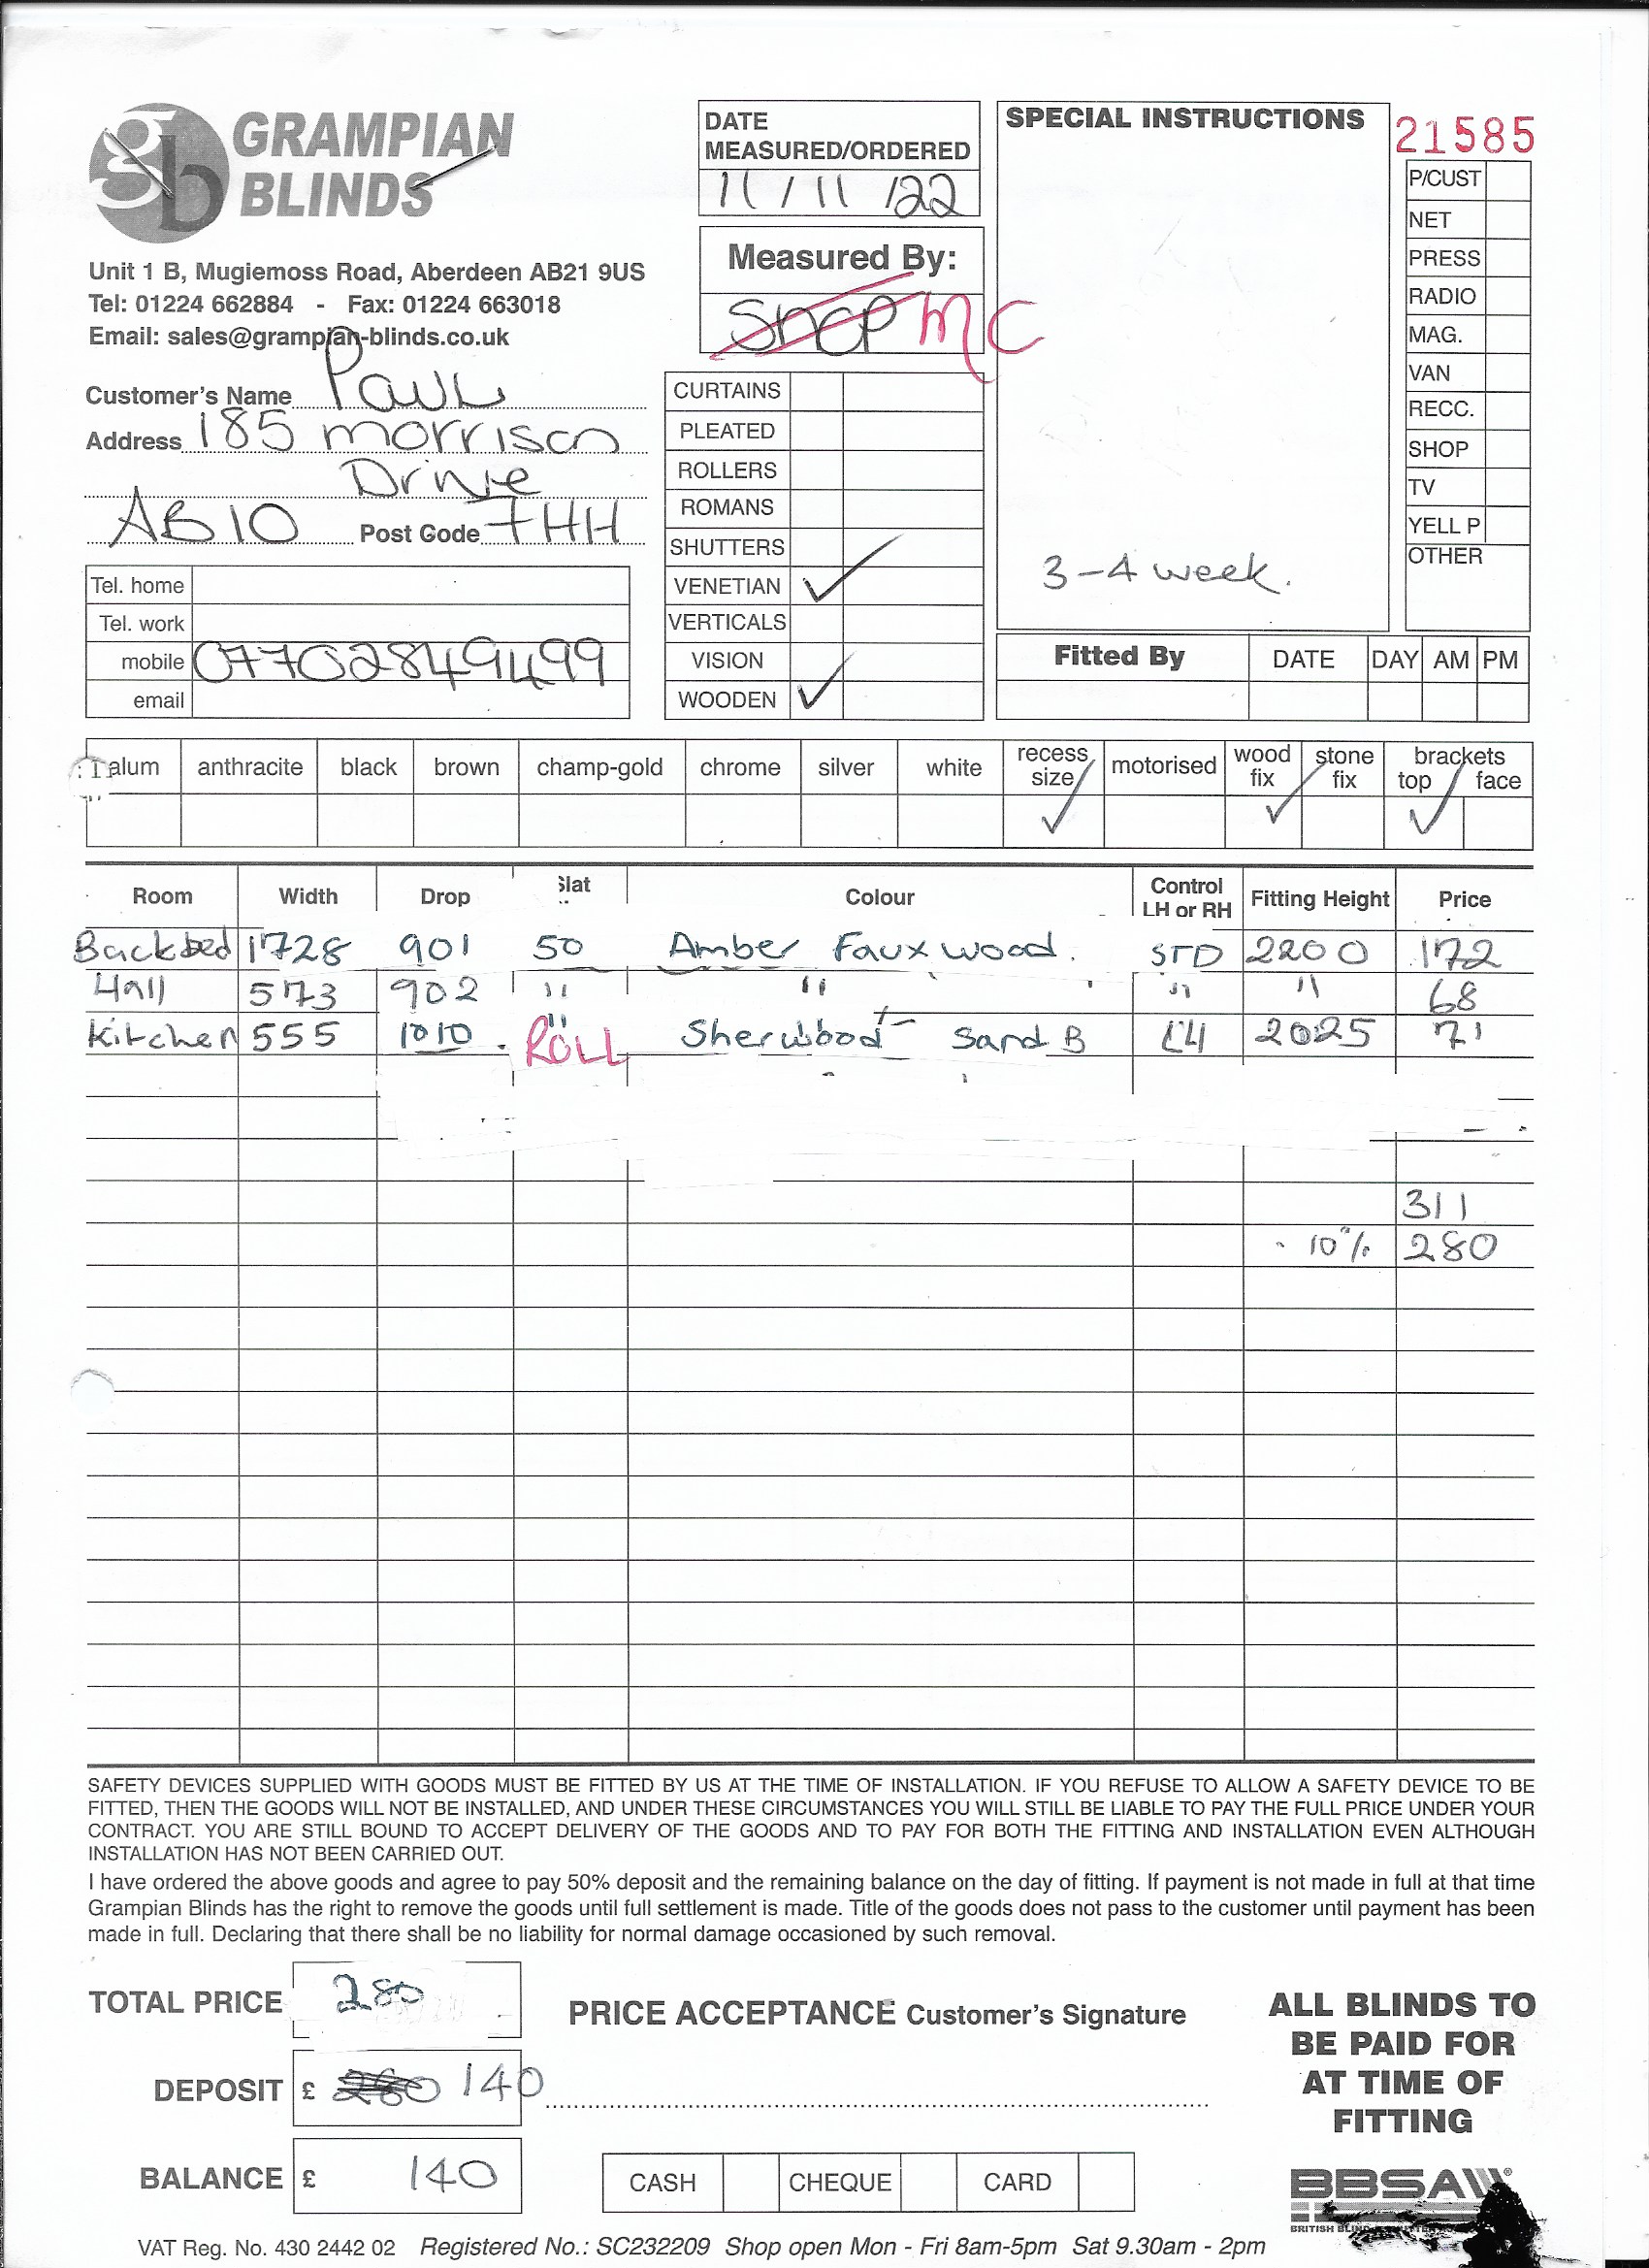 GRAMPIAN
BLINDS
Unit 1 B, Mugiemoss Road, Aberdeen AB21 9US
Tel: 01224 662884 - Fax: 01224 663018
Email: sales@grampian-blinds.co.uk
Customer's Name Paul
Address 185 morrison
Drive
AB10 Post Code 7HH
Tel. home
Tel. work
mobile 07702849499
email
DATE
MEASURED/ORDERED
11/11/22
Measured By:
Shop MC
CURTAINS
PLEATED
ROLLERS
ROMANS
SHUTTERS
VENETIAN ✓
VERTICALS
VISION
WOODEN ✓
SPECIAL INSTRUCTIONS
3-4 week.
21585
P/CUST
NET
PRESS
RADIO
MAG.
VAN
RECC.
SHOP
TV
YELL P
OTHER
Fitted By DATE DAY AM PM
alum anthracite black brown champ-gold chrome silver white recess size ✓ motorised wood fix ✓ stone fix brackets top ✓ face
Room Width Drop Slat Colour Control LH or RH Fitting Height Price
Backbed 1728 901 50 Amber Faux wood. STD 2200 172
Hall 573 902 " " " " 68
Kitchen 555 1010 ROLL Sherwood Sand B LH 2025 71
311
- 10% 280
SAFETY DEVICES SUPPLIED WITH GOODS MUST BE FITTED BY US AT THE TIME OF INSTALLATION. IF YOU REFUSE TO ALLOW A SAFETY DEVICE TO BE
FITTED, THEN THE GOODS WILL NOT BE INSTALLED, AND UNDER THESE CIRCUMSTANCES YOU WILL STILL BE LIABLE TO PAY THE FULL PRICE UNDER YOUR
CONTRACT. YOU ARE STILL BOUND TO ACCEPT DELIVERY OF THE GOODS AND TO PAY FOR BOTH THE FITTING AND INSTALLATION EVEN ALTHOUGH
INSTALLATION HAS NOT BEEN CARRIED OUT.
I have ordered the above goods and agree to pay 50% deposit and the remaining balance on the day of fitting. If payment is not made in full at that time
Grampian Blinds has the right to remove the goods until full settlement is made. Title of the goods does not pass to the customer until payment has been
made in full. Declaring that there shall be no liability for normal damage occasioned by such removal.
TOTAL PRICE 280
PRICE ACCEPTANCE Customer's Signature
DEPOSIT £ 280 140
BALANCE £ 140
CASH CHEQUE CARD
ALL BLINDS TO
BE PAID FOR
AT TIME OF
FITTING
BBSA
BRITISH
VAT Reg. No. 430 2442 02 Registered No.: SC232209 Shop open Mon - Fri 8am-5pm Sat 9.30am - 2pm